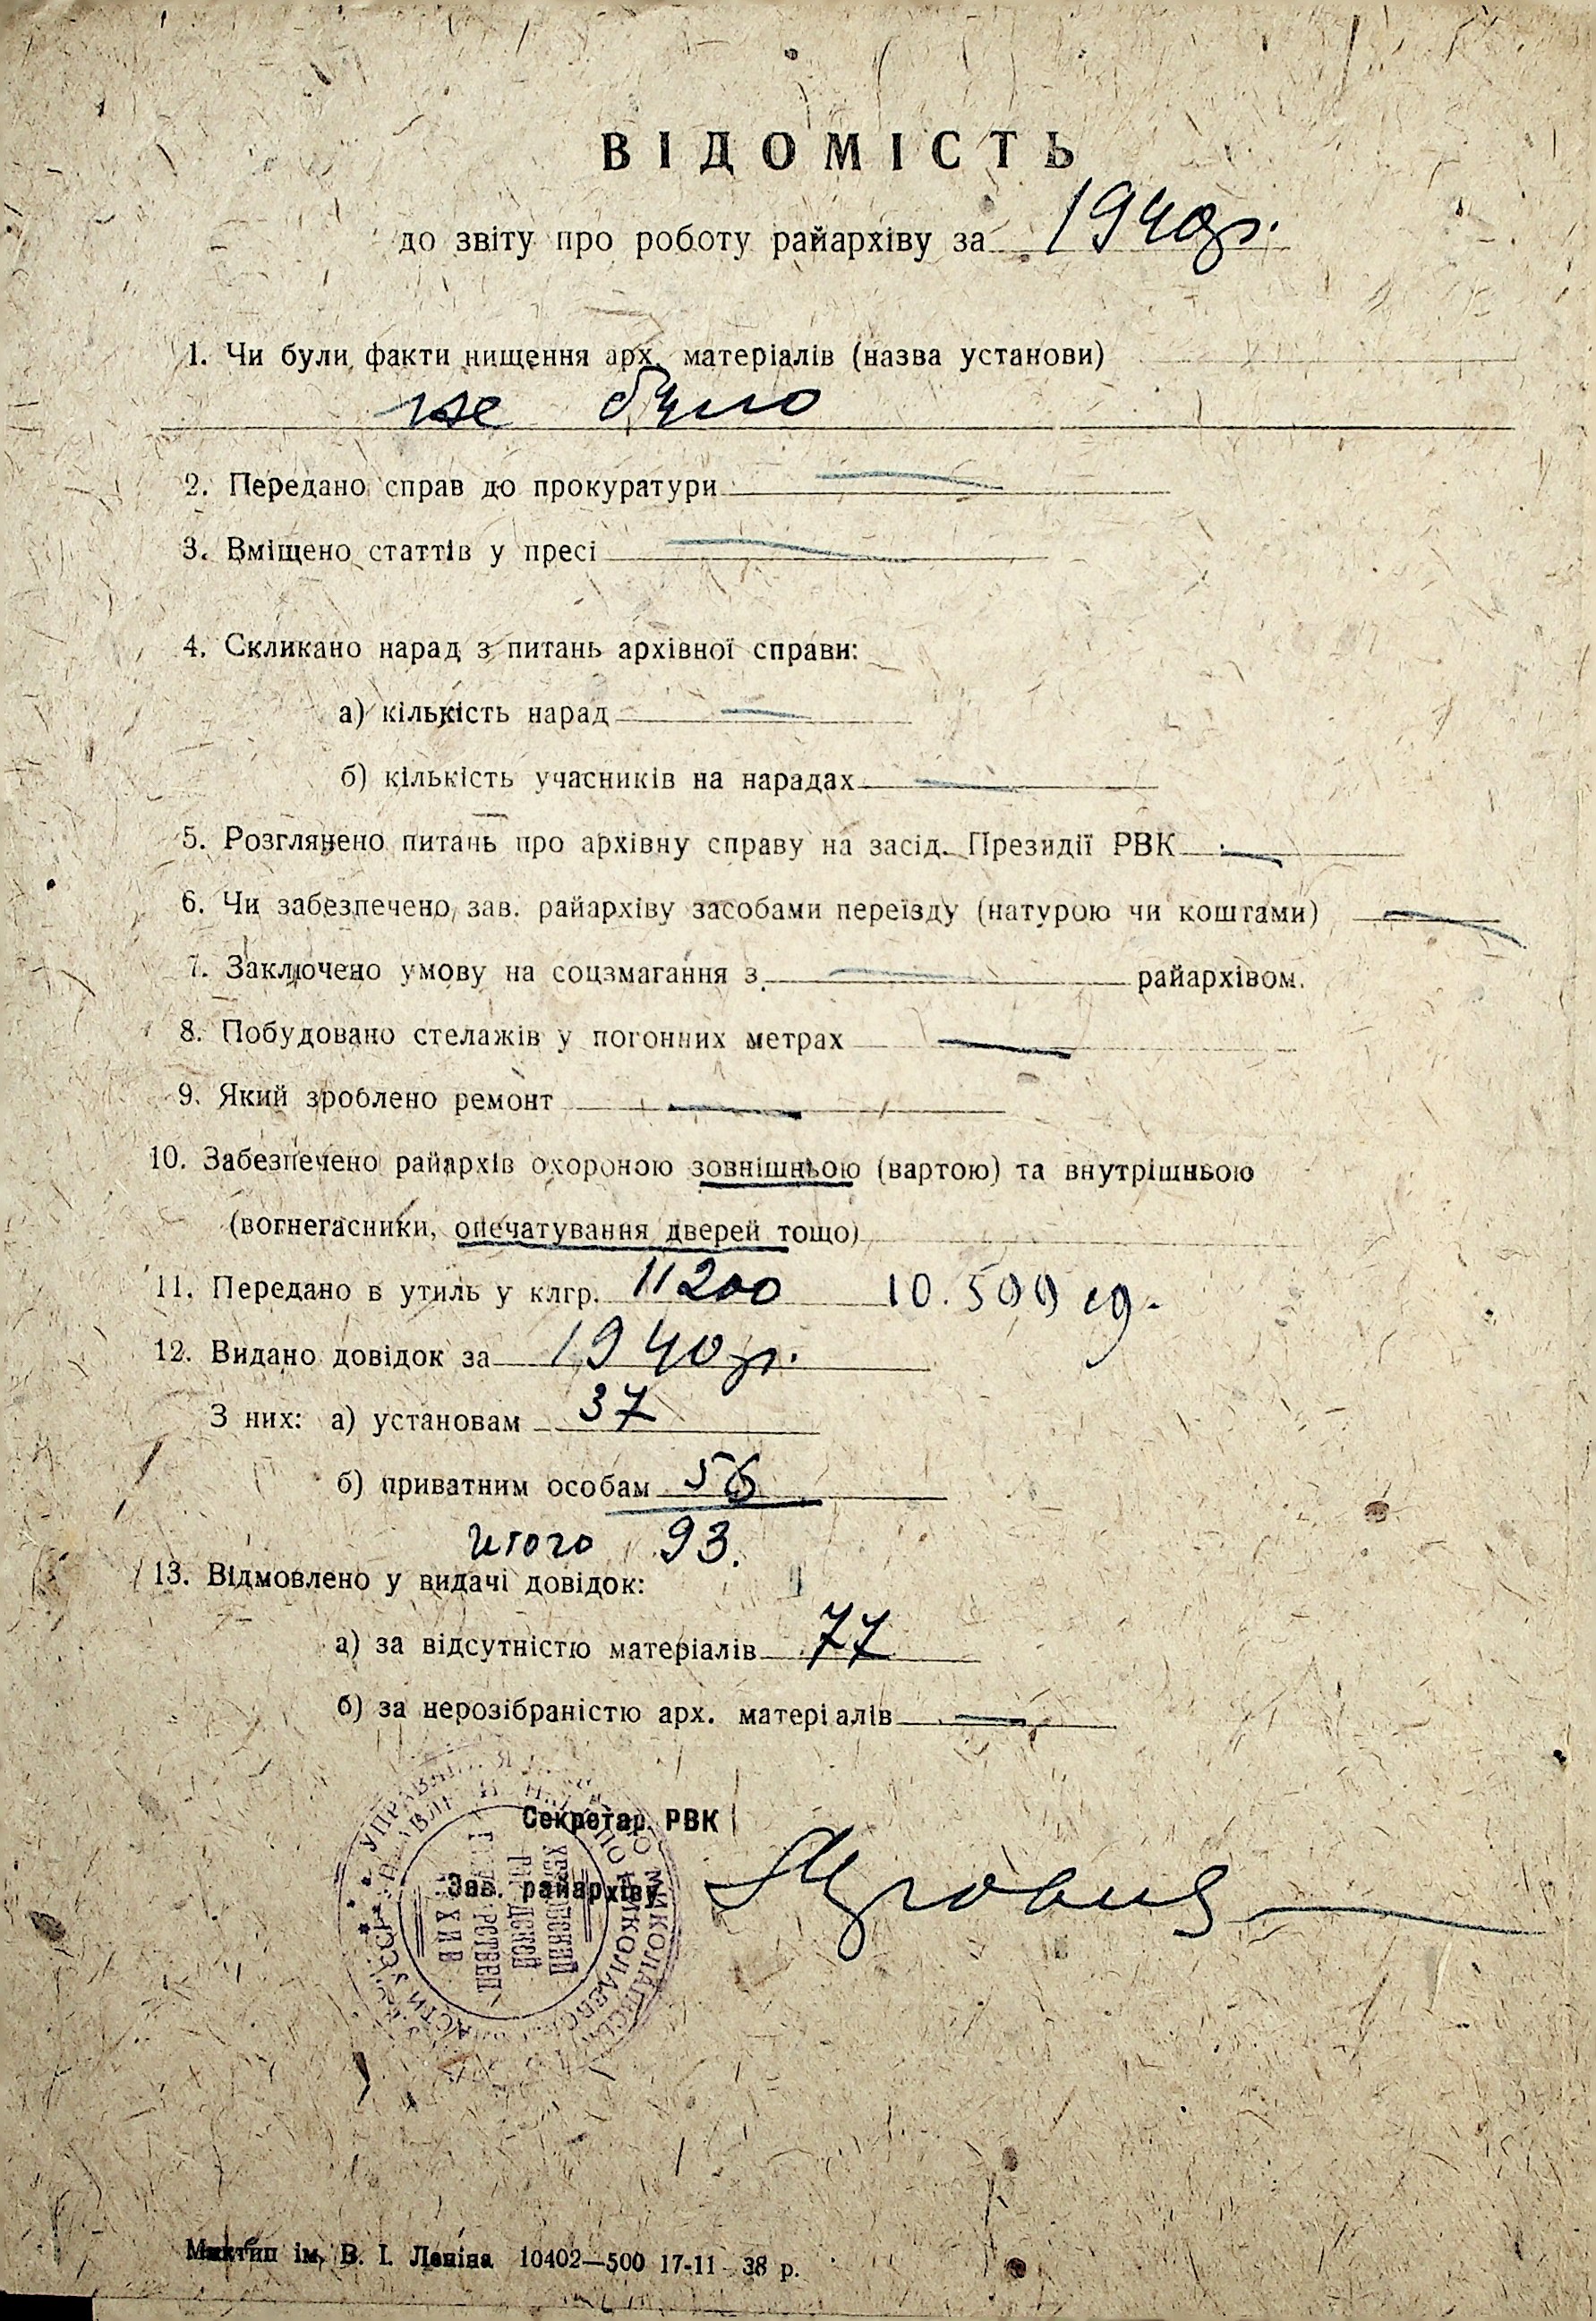 ВІДОМІСТЬ
до звіту про роботу райархіву за 1940 р.
1. Чи були факти нищення арх. матеріалів (назва установи)
не було
2. Передано справ до прокуратури —
3. Вміщено статтів у пресі —
4. Скликано нарад з питань архівної справи:
а) кількість нарад —
б) кількість учасників на нарадах —
5. Розглянено питань про архівну справу на засід. Президії РВК —
6. Чи забезпечено зав. райархіву засобами переїзду (натурою чи коштами) —
7. Заключено умову на соцзмагання з — райархівом.
8. Побудовано стелажів у погонних метрах —
9. Який зроблено ремонт —
10. Забезпечено райархів охороною зовнішньою (вартою) та внутрішньою
(вогнегасники, опечатування дверей тощо)
11. Передано в утиль у клгр. 11200 10.599
12. Видано довідок за 1940 р.
З них: а) установам 37
б) приватним особам 56
итого 93.
13. Відмовлено у видачі довідок:
а) за відсутністю матеріалів 77
б) за нерозібраністю арх. матеріалів —
Секретар РВК
Зав. райархіву
Миктип ім. В. І. Леніна 10402—500 17-11-38 р.